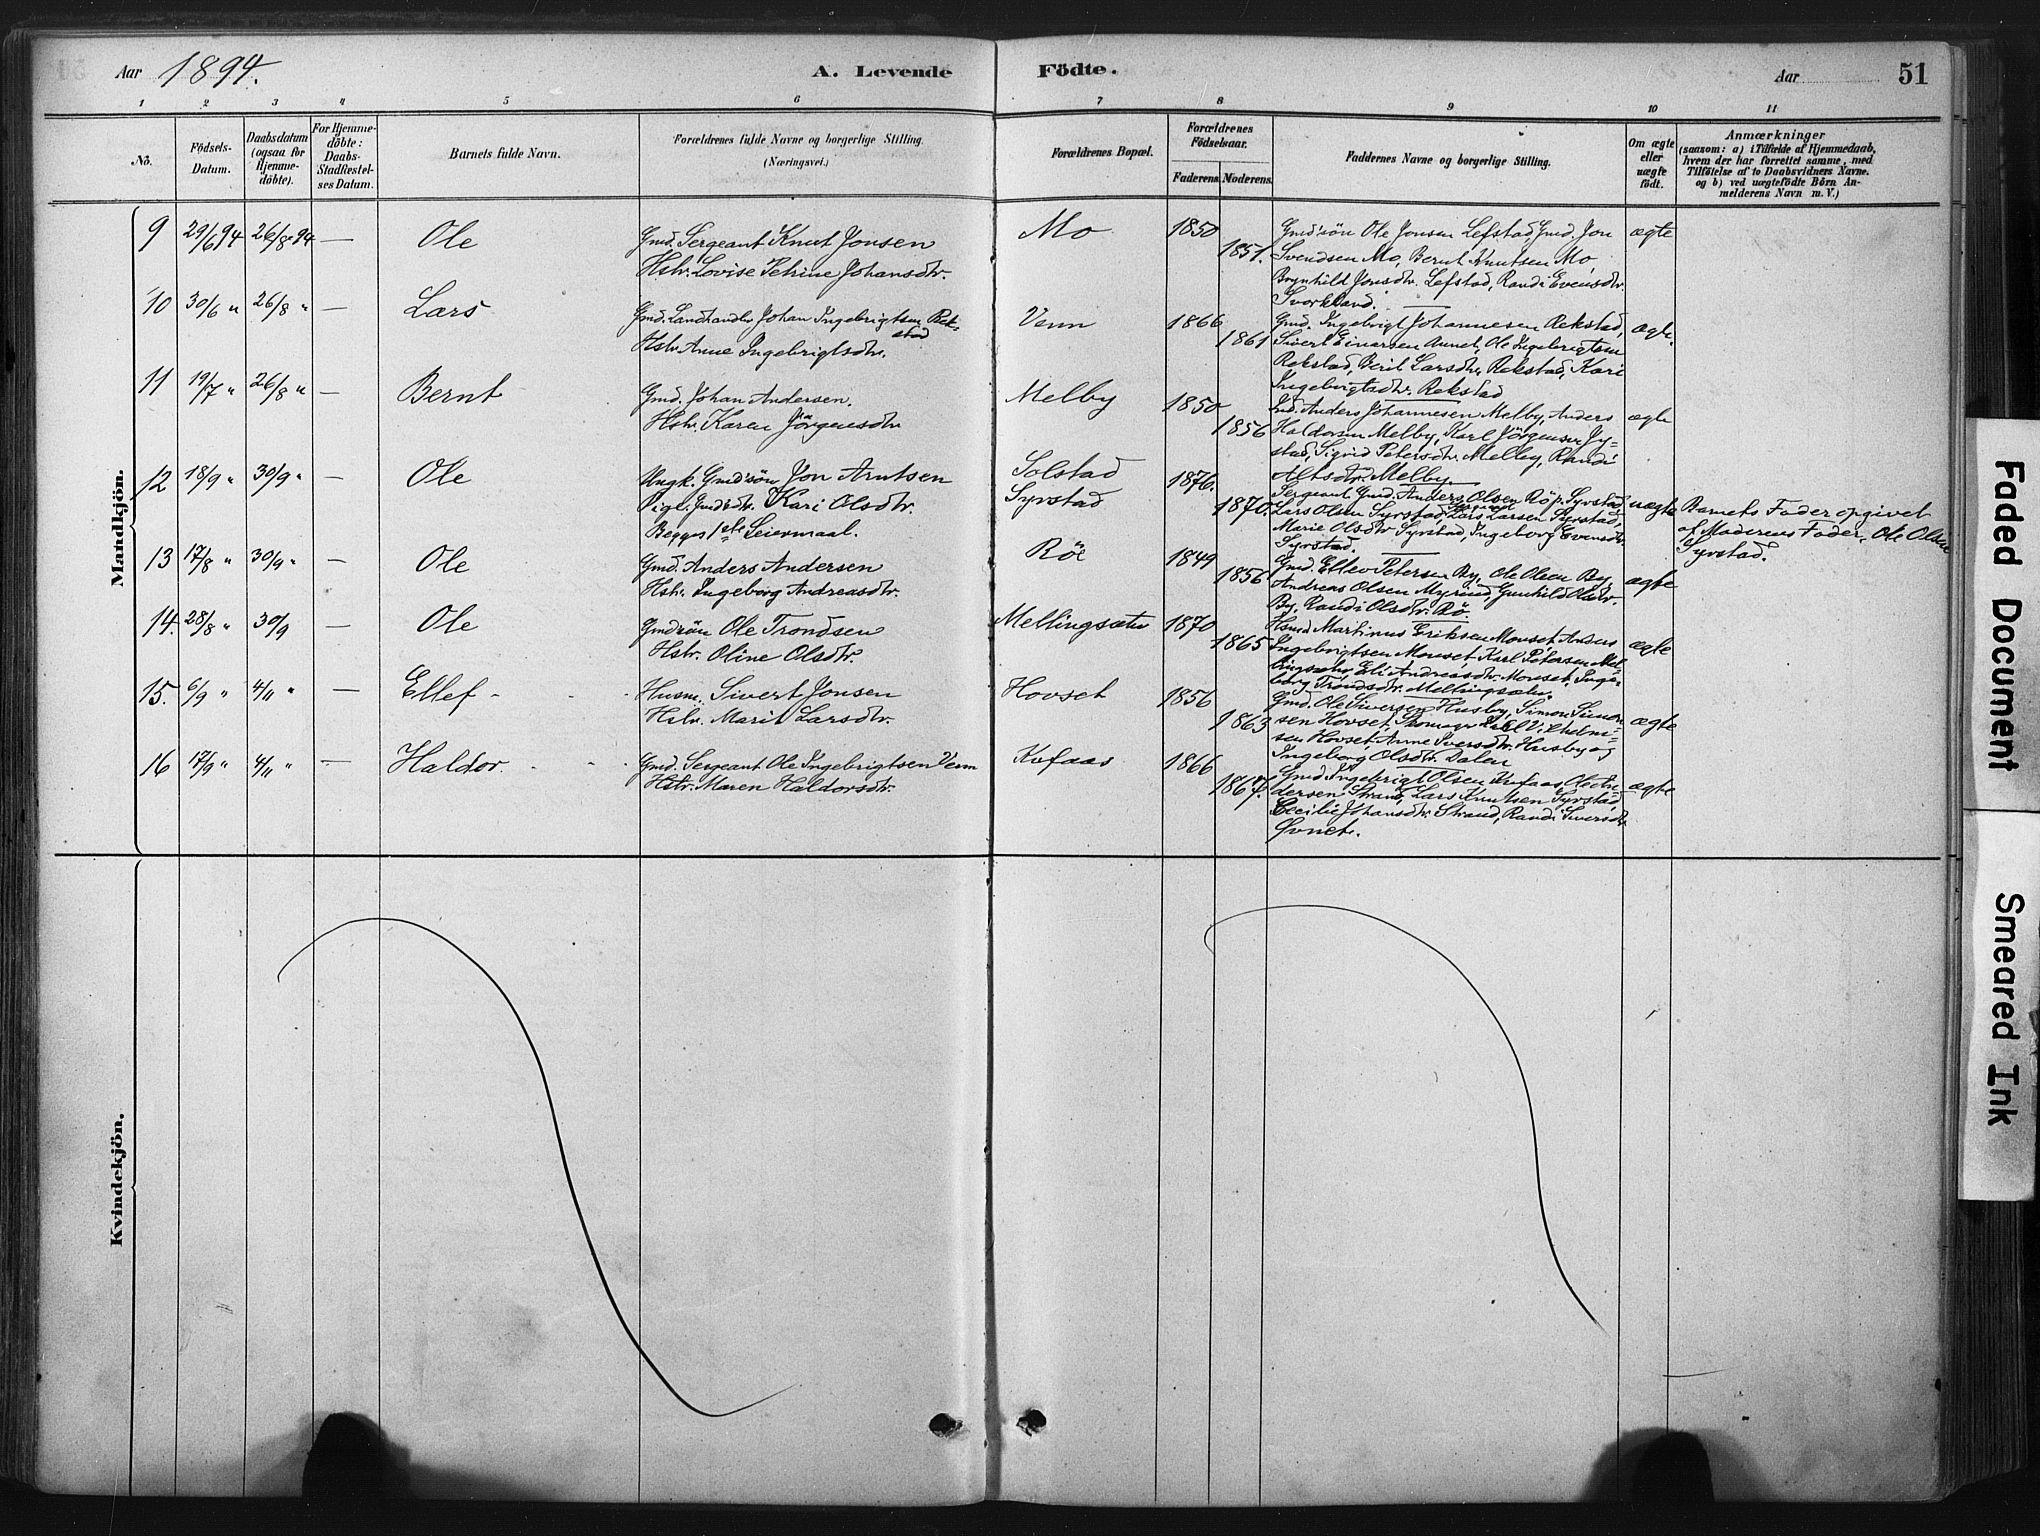 Aar 1894.
A. Levende Födte.
Aar
51
1 2 3 4 5 6 7 8 9 10 11
No.
Födsels-Datum.
Daabsdatum (ogsaa for Hjemme-döbte).
For Hjemme-döbte: Daabs-Stadfæstel-ses Datum.
Barnets fulde Navn.
Forældrenes fulde Navne og borgerlige Stilling.
(Næringsvei.)
Forældrenes Bopæl.
Forældrenes Födselsaar.
Faderens. Moderens.
Faddernes Navne og borgerlige Stilling.
Om ægte eller uægte födt.
Anmærkninger
(saasom: a) i Tilfælde af Hjemmedaab,
hvem der har forrettet samme, med
Tilföielse af to Daabsvidners Navne.
og b) ved uægtefödte Börn An-
melderens Navn m. V.)
Mandkjön.
9 29/6 94 26/8 94 — Ole Gmd. Sergeant Knut Jonsen Mo 1850 Gmdsön Ole Jonsen Lefstad, Gmd. Jon ægte
Hstr. Lovise Petrine Johansdtr. 1851. Svendsen Mo, Bernt Knutsen Mo,
Brynhild Jonsdtr. Lefstad, Randi Evensdtr.
Svorkland.
10 30/6 " 26/8 " — Lars Gmd. Landhandler Johan Ingebrigtsen Rek-stad Venn 1866 Gmd. Ingebrigt Johannesen Rekstad, ægte.
Hstr. Anne Ingebrigtsdtr. 1861 Sivert Einarsen Aunet, Ole Ingebrigtsen
Rekstad, Berit Larsdtr. Rekstad, Kari
Ingebrigtsdtr. Rekstad
11 19/7 " 26/8 " — Bernt Gmd. Johan Andersen. Melby 1850 Gmd. Anders Johannesen Melby, Anders ægte
Hstr. Karen Jörgensdtr 1856 Haldorsen Melby, Karl Jörgensen Sy-
stad, Sigrid Petersdtr. Melby, Randi
Melby
12 18/9 " 30/9 " — Ole Ungk. Gmdsön Jon Arntsen Solstad 1876. Sergeant Gmd. Anders Olsen Röp. Syrstad, uægte Barnets Fader opgivet
Pige Gmdsdtr. Kari Olsdtr. Syrstad 1870. Lars Olsen Syrstad, Lars Larsen Syrstad, af Moderens Fader, Ole Olsen
Begges 1ste Leiermaal. Marie Olsdtr Syrstad, Ingeborg Evensdtr. Syrstad.
Syrstad.
13 17/8 " 30/9 " — Ole Gmd. Anders Andersen Röe 1849 Gmd. Ellev Petersen By, Ole Olsen By, ægte
Hstr. Ingeborg Andreasdtr. 1856 Andreas Olsen Myrmo, Gunhild Olsdtr.
By, Randi Olsdtr. Rö.
14. 28/8 " 30/9 — Ole Gmdsön Ole Trondsen Mellingsæter 1870 Hsmd Martinus Eriksen Monset, Anders ægte
Hstr. Oline Olsdtr. 1865 Ingebrigtsen Monset, Karl Petersen Mel-
lingsæter, Eli Andreasdtr. Monset, Inge-
borg Trondsdtr. Mellingsæter.
15. 6/9 " 4/11 " — Ellef Husm. Sivert Jonsen Hovset 1856 Gmd. Ole Siversen Husby, Simon Simon- ægte
Hstr. Marit Larsdtr. 1863 sen Hovset, Skomager Karl Vilhelm-
sen Hovset, Anne Iversdtr. Husby og
Ingeborg Olsdtr. Dalen
16 17/9 " 4/11 " — Haldor. Gmd. Sergeant Ole Ingebrigtsen Venn Kufaas 1866 Gmd. Ingebrigt Olsen Kufaas, Ole An- ægte
Hstr. Maren Haldorsdtr. 1867. dersen Strand, Lars Knutsen Syrstad,
Cecilie Johansdtr. Strand, Randi Siversdtr.
Övnet.
Kvindekjön.
Faded Document
Smeared Ink